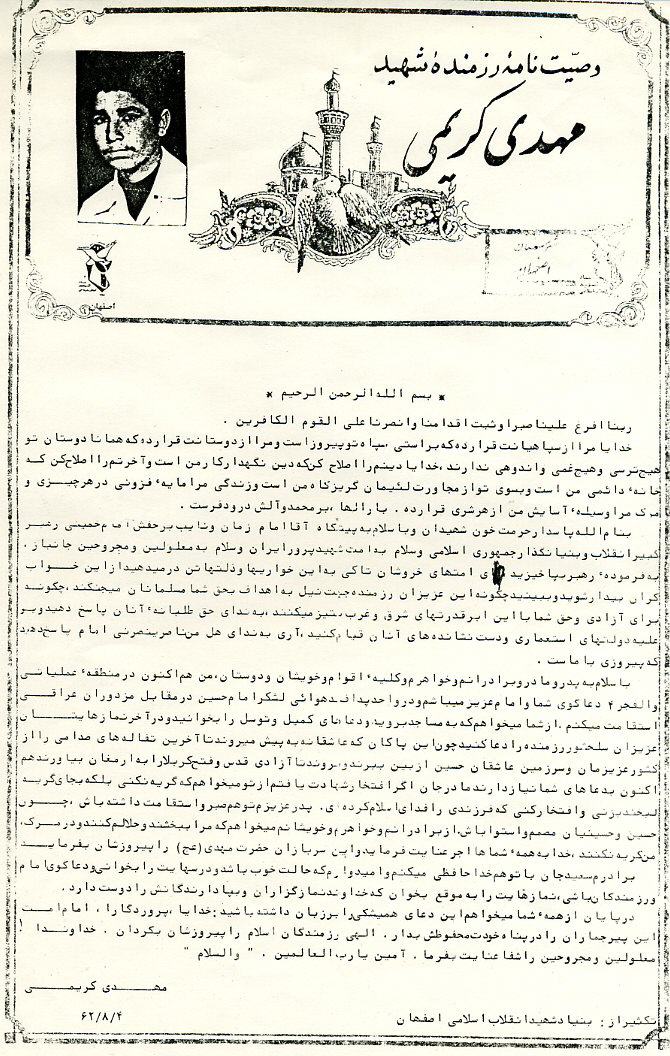 وصیّت نامهٔ رزمندهٔ شهید
مهدی کریمی
اصفهان
* بسم الله الرحمن الرحیم *
ربنا افرغ علینا صبرا و ثبت اقدامنا و انصرنا علی القوم الکافرین .
خدایا مرا از سپاهیانت قرار ده که براستی ، سپاه تو پیروز است و مرا از دوستانت قرار ده که همانا دوستان تو
هیچ ترسی و هیچ غمی و اندوهی ندارند ، خدایا دینم را اصلاح کن که دین نگهدار کار من است و آخرتم را اصلاح کن که
خانهٔ دائمی من است و بسوی تو از مجاورت لئیمان گریزگاه من است و زندگی مرا مایهٔ فزونی در هر چیزی و
مرگ مرا وسیلهٔ آسایش من از هر شری قرار ده . بارالها ، بر محمد و آلش درود فرست .
بنام الله پاسدار حرمت خون شهیدان و با سلام به پیشگاه آقا امام زمان و نایب بر حقش امام خمینی رهبر
کبیر انقلاب و بنیانگذار جمهوری اسلامی و سلام به امت شهیدپرور ایران و سلام به معلولین و مجروحین جانباز .
به فرمودهٔ رهبر بپاخیزید ای امتهای خروشان تا کی به این خواریها و ذلتها تن در میدهید از این خواب
گران بیدار شوید و ببینید چگونه این عزیزان رزمنده جهت نیل به اهداف بحق شما مسلمانان میجنگند ، چگونه
برای آزادی و حق شما با این ابرقدرتهای شرق و غرب ، ستیز میکنند ، به ندای حق طلبانهٔ آنان پاسخ دهید و بر
علیه دولتهای استعماری و دست نشانده‌های آنان قیام کنید ، آری به ندای هل من ناصر ینصرنی امام پاسخ دهید
که پیروزی با ماست .
با سلام به پدر و مادر و برادرانم و خواهرم و کلیهٔ اقوام و خویشان و دوستان ، من هم اکنون در منطقهٔ عملیاتی
والفجر ۴ دعاگوی شما و امام عزیز میباشم و در واحد پدافند هوائی لشکر امام حسین در مقابل مزدوران عراقی
استقامت میکنم . از شما میخواهم که به مساجد بروید و دعاهای کمیل و توسل را بخوانید و در آخر نمازهایتان
عزیزان سلحشور رزمنده را دعا کنید چون این پاکان که عاشقانه به پیش میروند تا آخرین تفاله‌های صدامی را از
کشور عزیزمان و سرزمین عاشقان حسین از بین ببرند و بروند تا آزادی قدس و فتح کربلا را به ارمغان بیاورند هم
اکنون به دعاهای شما نیاز دارند مادر جان اگر افتخار شهادت یافتم از تو میخواهم که گریه نکنی بلکه بجای گریه
لبخند بزنی و افتخار کنی که فرزندی را فدای اسلام کرده‌ای . پدر عزیزم تو هم صبر و استقامت داشته باش ، چون
حسین و حسینیان مصمم و استوار باش ، از برادرانم و خواهرم و خویشانم میخواهم که مرا ببخشند و حلالم کنند و در مرگ
من گریه نکنند ، خدا به همهٔ شماها اجر عنایت فرماید و این سربازان حضرت مهدی (عج) را پیروزشان بفرماید
برادرم سعید جان با تو هم خداحافظی میکنم و امیدوارم که حالت خوب باشد و در نهایت را بخوانی و دعاگوی امام
و رزمندگان باشی ، نمازهایت را به موقع بخوان که خداوند نمازگزاران و بپادارندگانش را دوست دارد .
در پایان از همهٔ شما میخواهم این دعای همیشگی را بر زبان داشته باشید : خدایا ، پروردگارا ، امام امت
این پیر جماران را در پناه خودت محفوظش بدار . الهی رزمندگان اسلام را پیروزشان بگردان . خداوندا !
معلولین و مجروحین را شفا عنایت بفرما . آمین یا رب العالمین . " والسلام "
مهدی کریمی
تکثیر از : بنیاد شهید انقلاب اسلامی اصفهان
۶۲/۸/۴